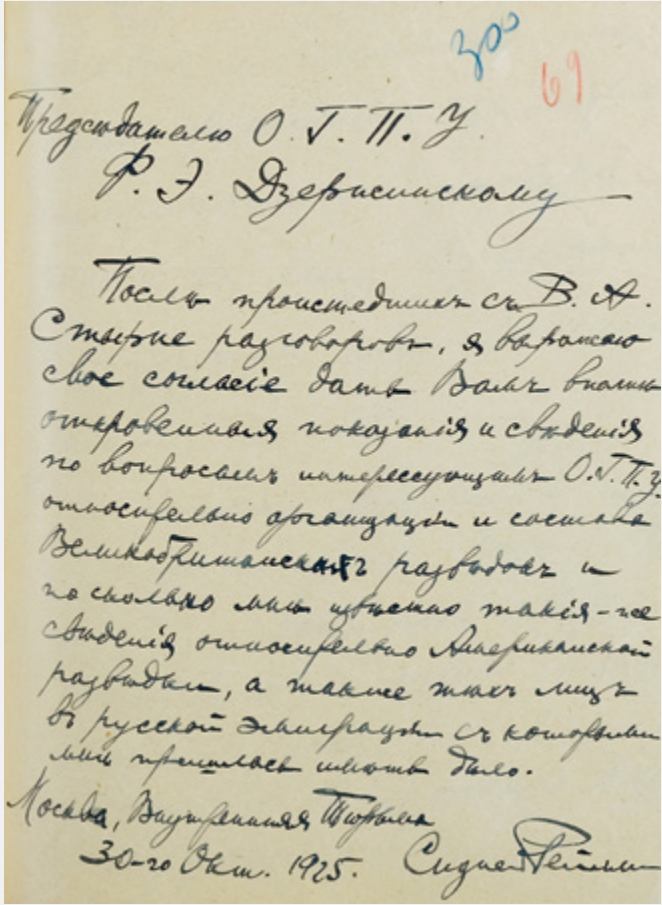 300
69
Предсѣдателю О. Г. П. У.
Ф. Э. Дзержинскому
Послѣ происшедшихъ съ В. А.
Стырне разговоровъ, я выражаю
свое согласіе дать Вамъ вполнѣ
откровенныя показанія и свѣденія
по вопросамъ интересующимъ О. Г. П. У
относительно организаціи и состава
Великобританскихъ развѣдокъ и
по сколько мнѣ извѣстно такія-же
свѣденія относительно Американской
развѣдки, а также тѣхъ лицъ
въ русской эмиграціи съ которыми
мнѣ пришлось имѣть дѣло.
Москва, Внутренняя Тюрьма
30-го Окт. 1925. Сидней Рейлли